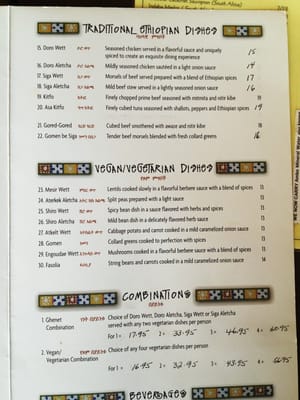 TRADITIONAL ETHIOPIAN DISHES
15. Doro Wett Seasoned chicken served in a flavorful sauce and uniquely 15
spiced to create an exquisite dining experience
16. Doro Aletcha Mildly seasoned chicken sautéed in a light onion sauce 14
17. Siga Wett Morsels of beef served prepared with a blend of Ethiopian spices 17
18. Siga Aletcha Mild beef stew served in a lightly seasoned onion sauce 16
19. Kitfo Finely chopped prime beef seasoned with mitmita and nitir kibe 19
20. Asa Kitfo Finely cubed tuna seasoned with shallots, peppers and Ethiopian spices 19
21. Gored-Gored Cubed beef smothered with awaze and nitir kibe 18
22. Gomen be Siga Tender beef morsels blended with fresh collard greens 16
VEGAN/VEGETARIAN DISHES
23. Mesir Wett Lentils cooked slowly in a flavorful berbere sauce with a blend of spices 13
24. Aterkek Aletcha Split peas prepared with a light sauce 13
25. Shiro Wett Spicy bean dish in a sauce flavored with herbs and spices 13
26. Shiro Aletcha Mild bean dish in a delicately flavored herb sauce 13
27. Atkelt Wett Cabbage potato and carrot cooked in a mild caramelized onion sauce 13
28. Gomen Collard greens cooked to perfection with spices 13
29. Engoudae Wett Mushrooms cooked in flavorful berbere sauce with a blend of spices 13
30. Fasolia String beans and carrots cooked in a mild caramelized onion sauce 14
COMBINATIONS
1. Ghenet Combination Choice of Doro Wett, Doro Aletcha, Siga Wett or Siga Aletcha
served with any two vegetarian dishes per person
For 1 = 17.95 2 = 33.95 3 = 46.95 4 = 60.95
2. Vegan/ Vegetarian Combination Choice of any four vegetarian dishes per person
For 1 = 16.95 2 = 32.95 3 = 43.95 4 = 56.95
BEVERAGES